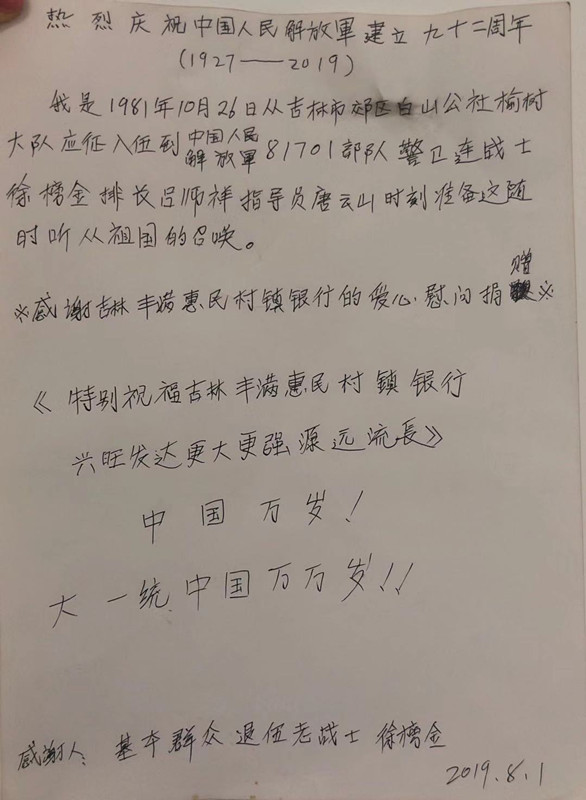 热烈庆祝中国人民解放軍建立九十二周年
(1927——2019)
我是1981年10月26日从吉林市郊区白山公社榆树
大队应征入伍到中国人民解放軍81701部队警卫连战士
徐榜金排长吕师祥指导员唐云山时刻准备这随
时听从祖国的召唤。
※感谢吉林丰满惠民村镇银行的爱心慰问捐赠※
《特别祝福吉林丰满惠民村镇银行
兴旺发达更大更强源远流長》
中国万岁!
大一统中国万万岁!!
感谢人:基本群众退伍老战士徐榜金
2019.8.1